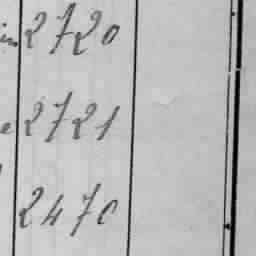 2720
2721
2470